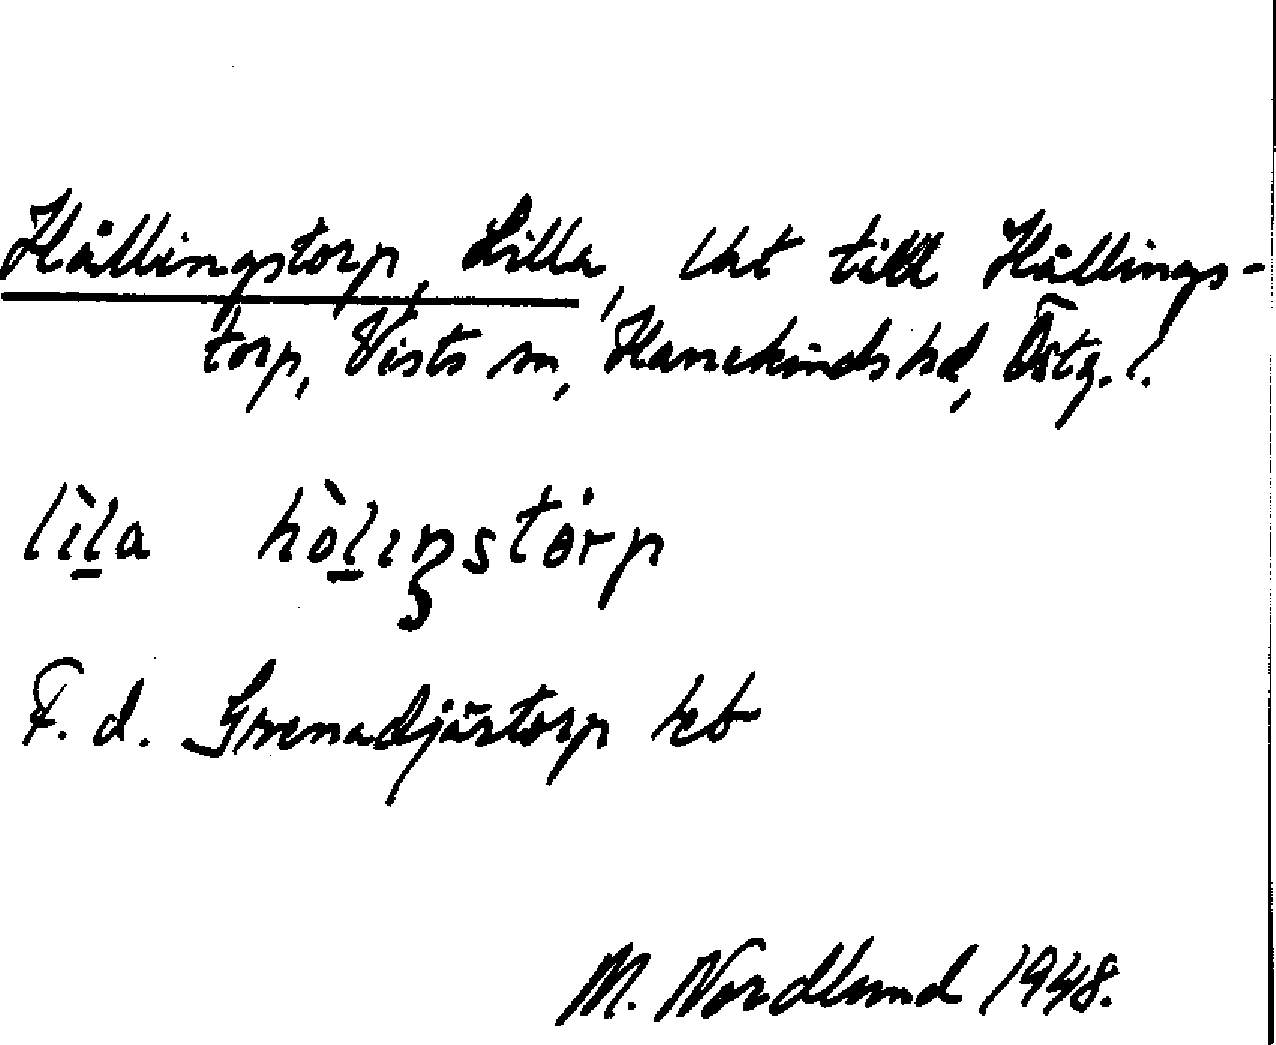 Hållingstorp, Lilla, lht till Hållings-
torp, Vists sn, Hanekinds hd, Östg. l.
lìla hòlıŋstȯrp
F. d. Grenadjärtorp
M. Nordlund 1948.